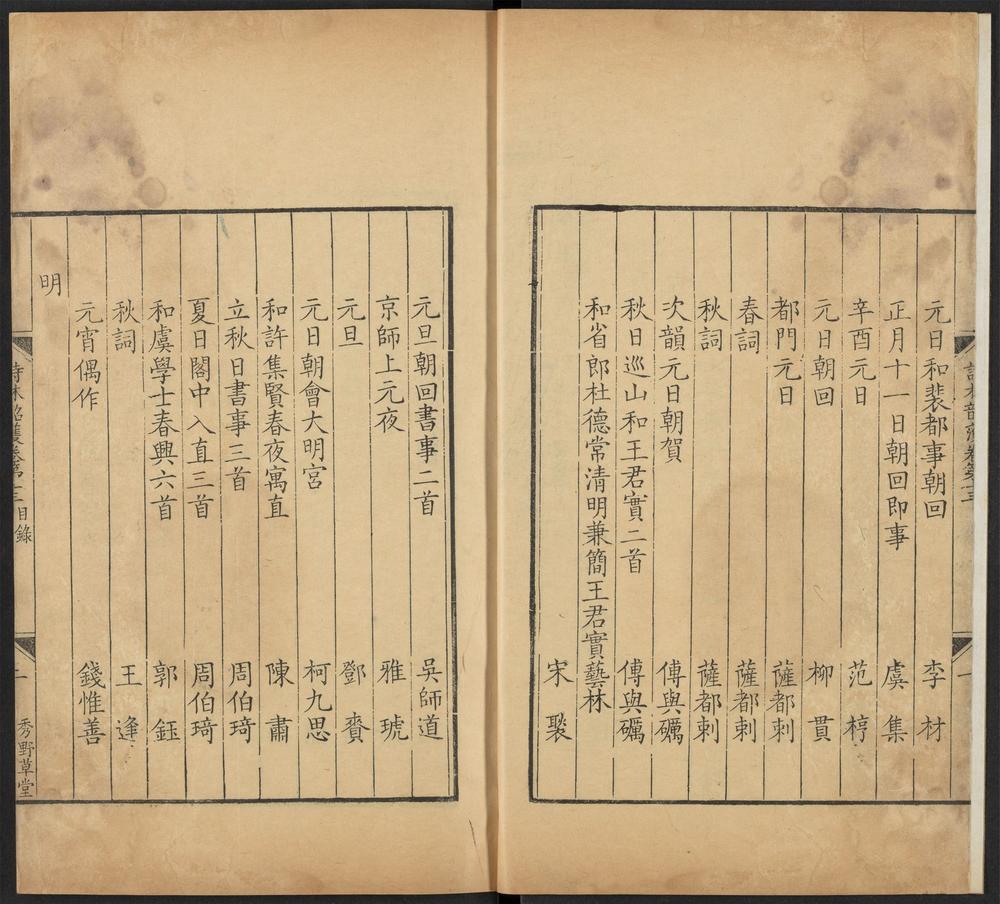 元日和裴都事朝回 李材
正月十一日朝回即事 虞集
辛酉元日 范梈
元日朝回 柳貫
都門元日 薩都剌
春詞 薩都剌
秋詞 薩都剌
次韻元日朝賀 傅與礪
秋日巡山和王君實二首 傅與礪
和省郎杜德常清明兼簡王君實藝林
宋褧
元旦朝回書事二首 吳師道
京師上元夜 雅琥
元旦 鄧賚
元日朝會大明宮 柯九思
和許集賢春夜寓直 陳肅
立秋日書事三首 周伯琦
夏日閣中入直三首 周伯琦
和虞學士春興六首 郭鈺
秋詞 王逢
元宵偶作 錢惟善
明
詩林韶濩卷第十三目錄 二 秀野草堂